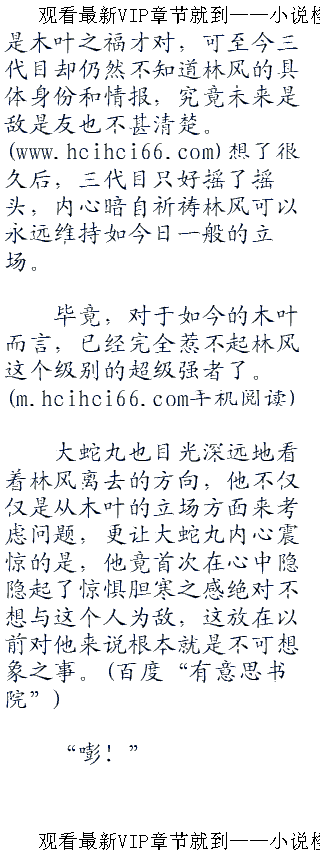 观看最新VIP章节就到——小说格
是木叶之福才对，可至今三
代目却仍然不知道林风的具
体身份和情报，究竟未来是
敌是友也不甚清楚。
(www.hcihci66.com)想了很
久后，三代目只好摇了摇
头，内心暗自祈祷林风可以
永远维持如今日一般的立
场。
毕竟，对于如今的木叶
而言，已经完全惹不起林风
这个级别的超级强者了。
(m.hcihci66.com手机阅读)
大蛇丸也目光深远地看
着林风离去的方向，他不仅
仅是从木叶的立场方面来考
虑问题，更让大蛇丸内心震
惊的是，他竟首次在心中隐
隐起了惊惧胆寒之感绝对不
想与这个人为敌，这放在以
前对他来说根本就是不可想
象之事。(百度“有意思书
院”)
“嘭！”
观看最新VIP章节就到——小说